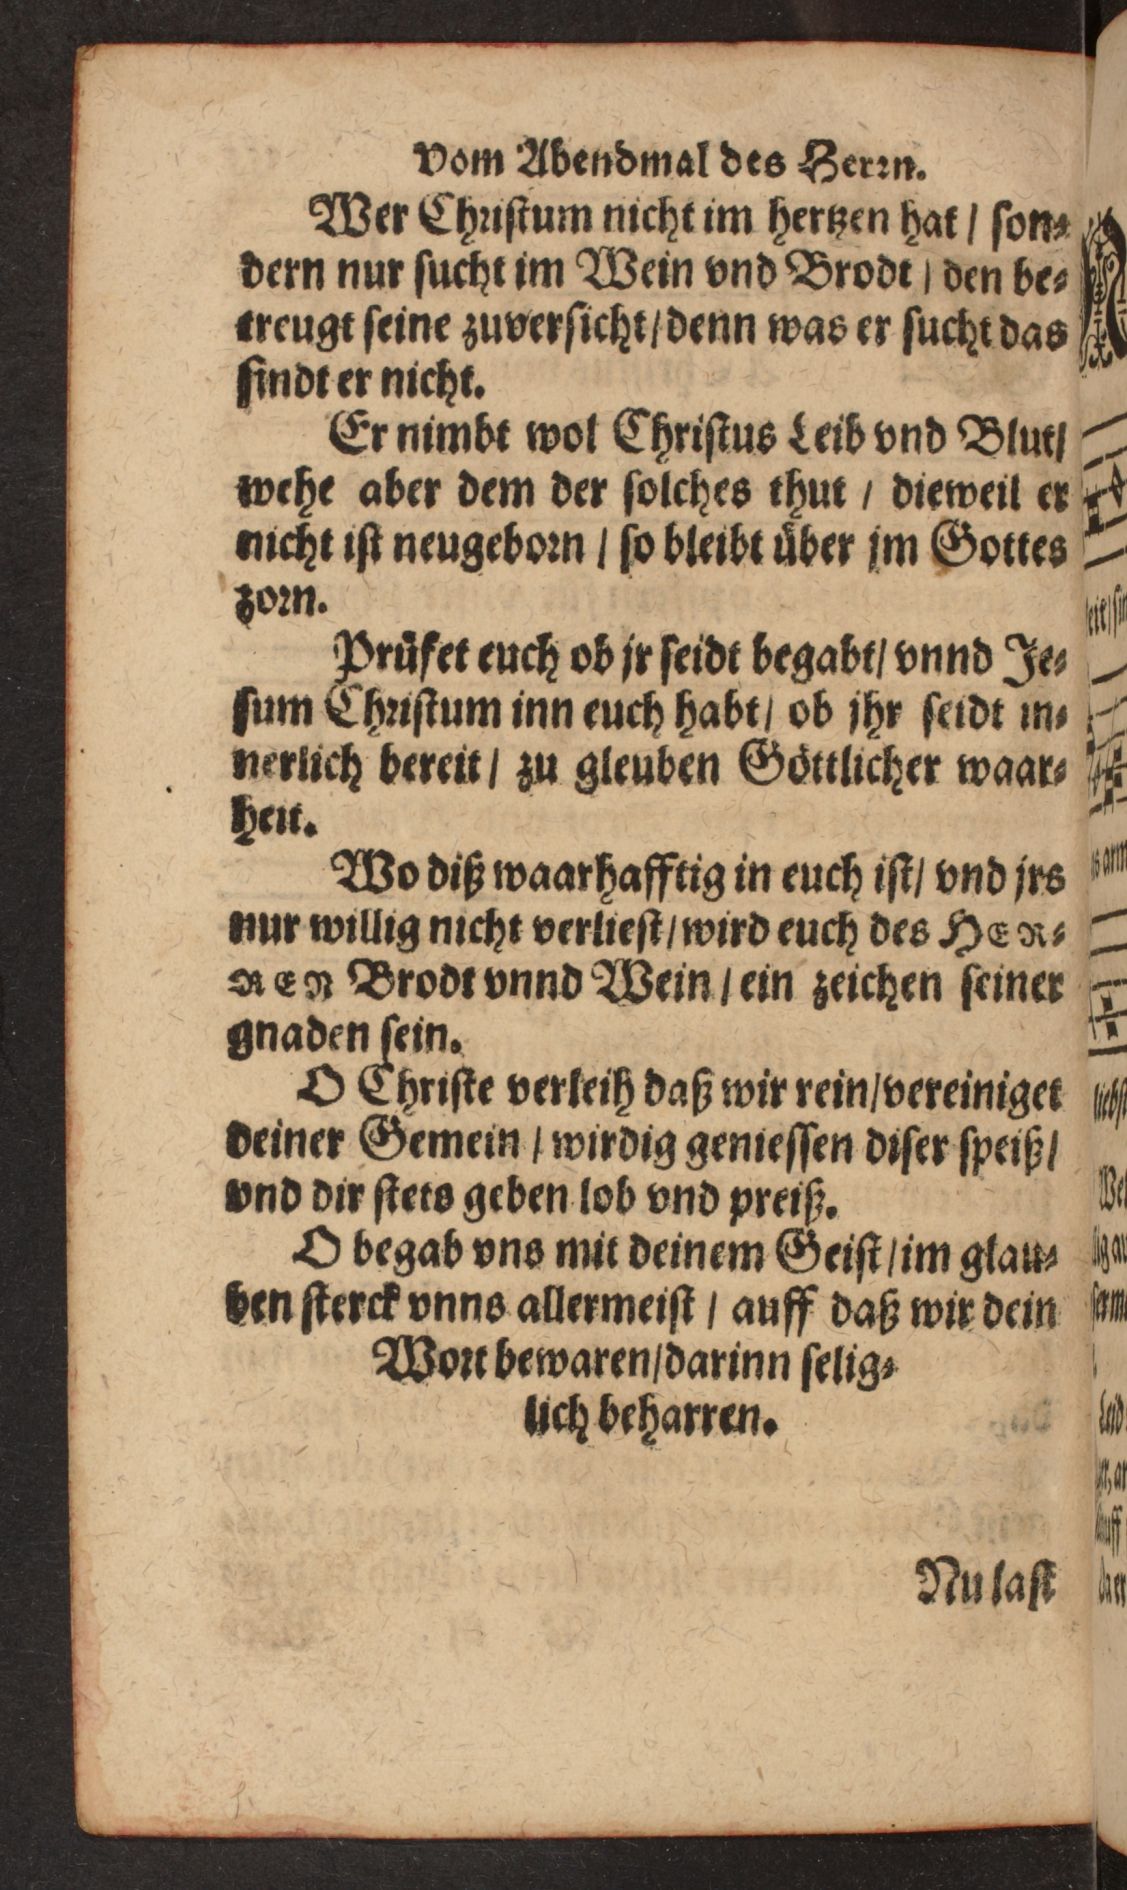 Vom Abendmal des Herrn.
Wer Christum nicht im hertzen hat / son-
dern nur sucht im Wein vnd Brodt / den be-
treugt seine zuversicht / denn was er sucht das
findt er nicht.
Er nimbt wol Christus Leib vnd Blut /
wehe aber dem der solches thut / dieweil er
nicht ist neugeborn / so bleibt über jm Gottes
zorn.
Prüfet euch ob jr seidt begabt / vnnd Je-
sum Christum inn euch habt / ob jhr seidt in-
nerlich bereit / zu gleuben Göttlicher waar-
heit.
Wo diß waarhafftig in euch ist / vnd jrs
nur willig nicht verliest / wird euch des HER-
REN Brodt vnnd Wein / ein zeichen seiner
gnaden sein.
O Christe verleih daß wir rein / vereiniget
deiner Gemein / wirdig geniessen diser speiß /
vnd dir stets geben lob vnd preiß.
O begab vns mit deinem Geist / im glau-
ben sterck vnns allermeist / auff daß wir dein
Wort bewaren / darinn selig-
lich beharren.
Nu last